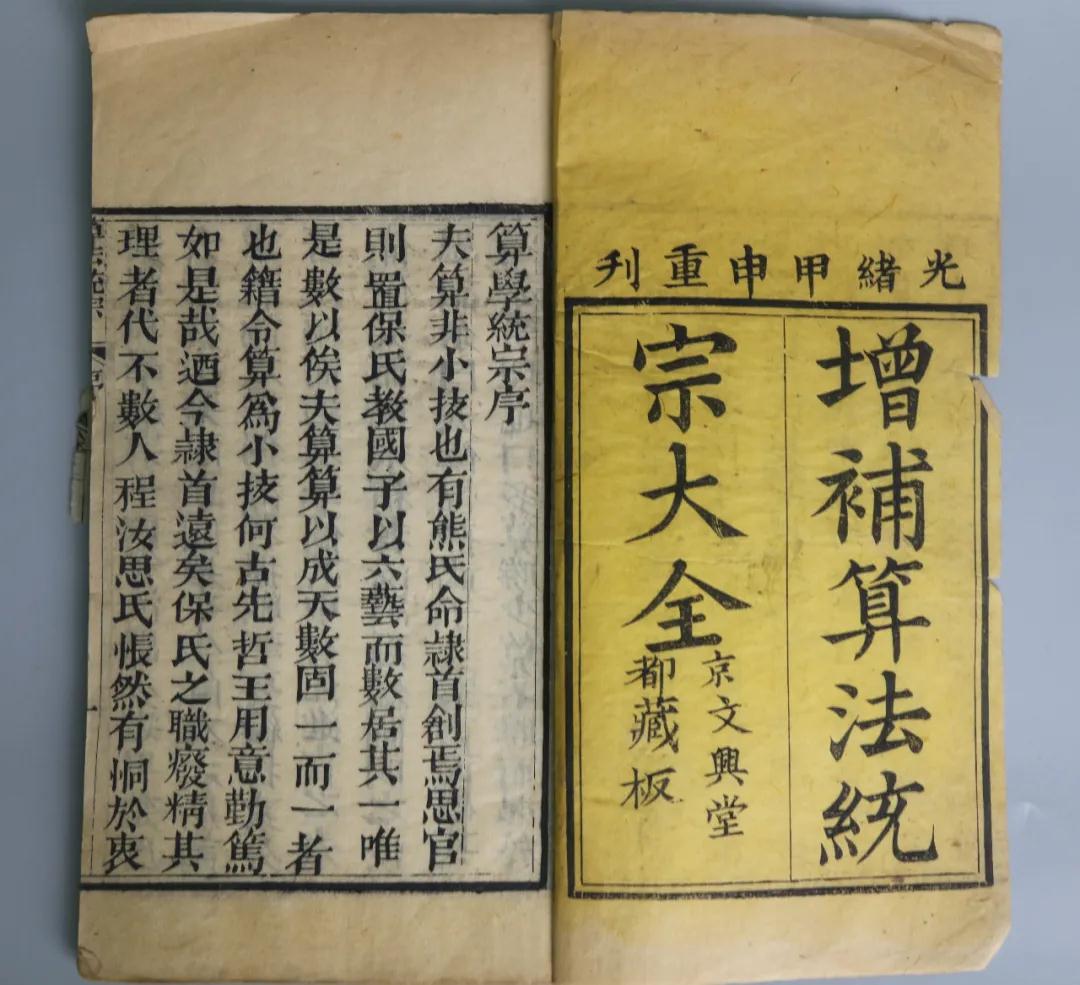 光緒甲申重刊
增補算法統
宗大全
京文興堂
都藏板
算學統宗序
夫算非小技也有熊氏命隷首創焉思官
則置保氏教國子以六藝而數居其一唯
是數以俟夫算算以成天數固一而一者
也籍令算爲小技何古先哲王用意勤篤
如是哉迺今隷首遠矣保氏之職癈精其
理者代不數人程汝思氏悵然有恫於衷